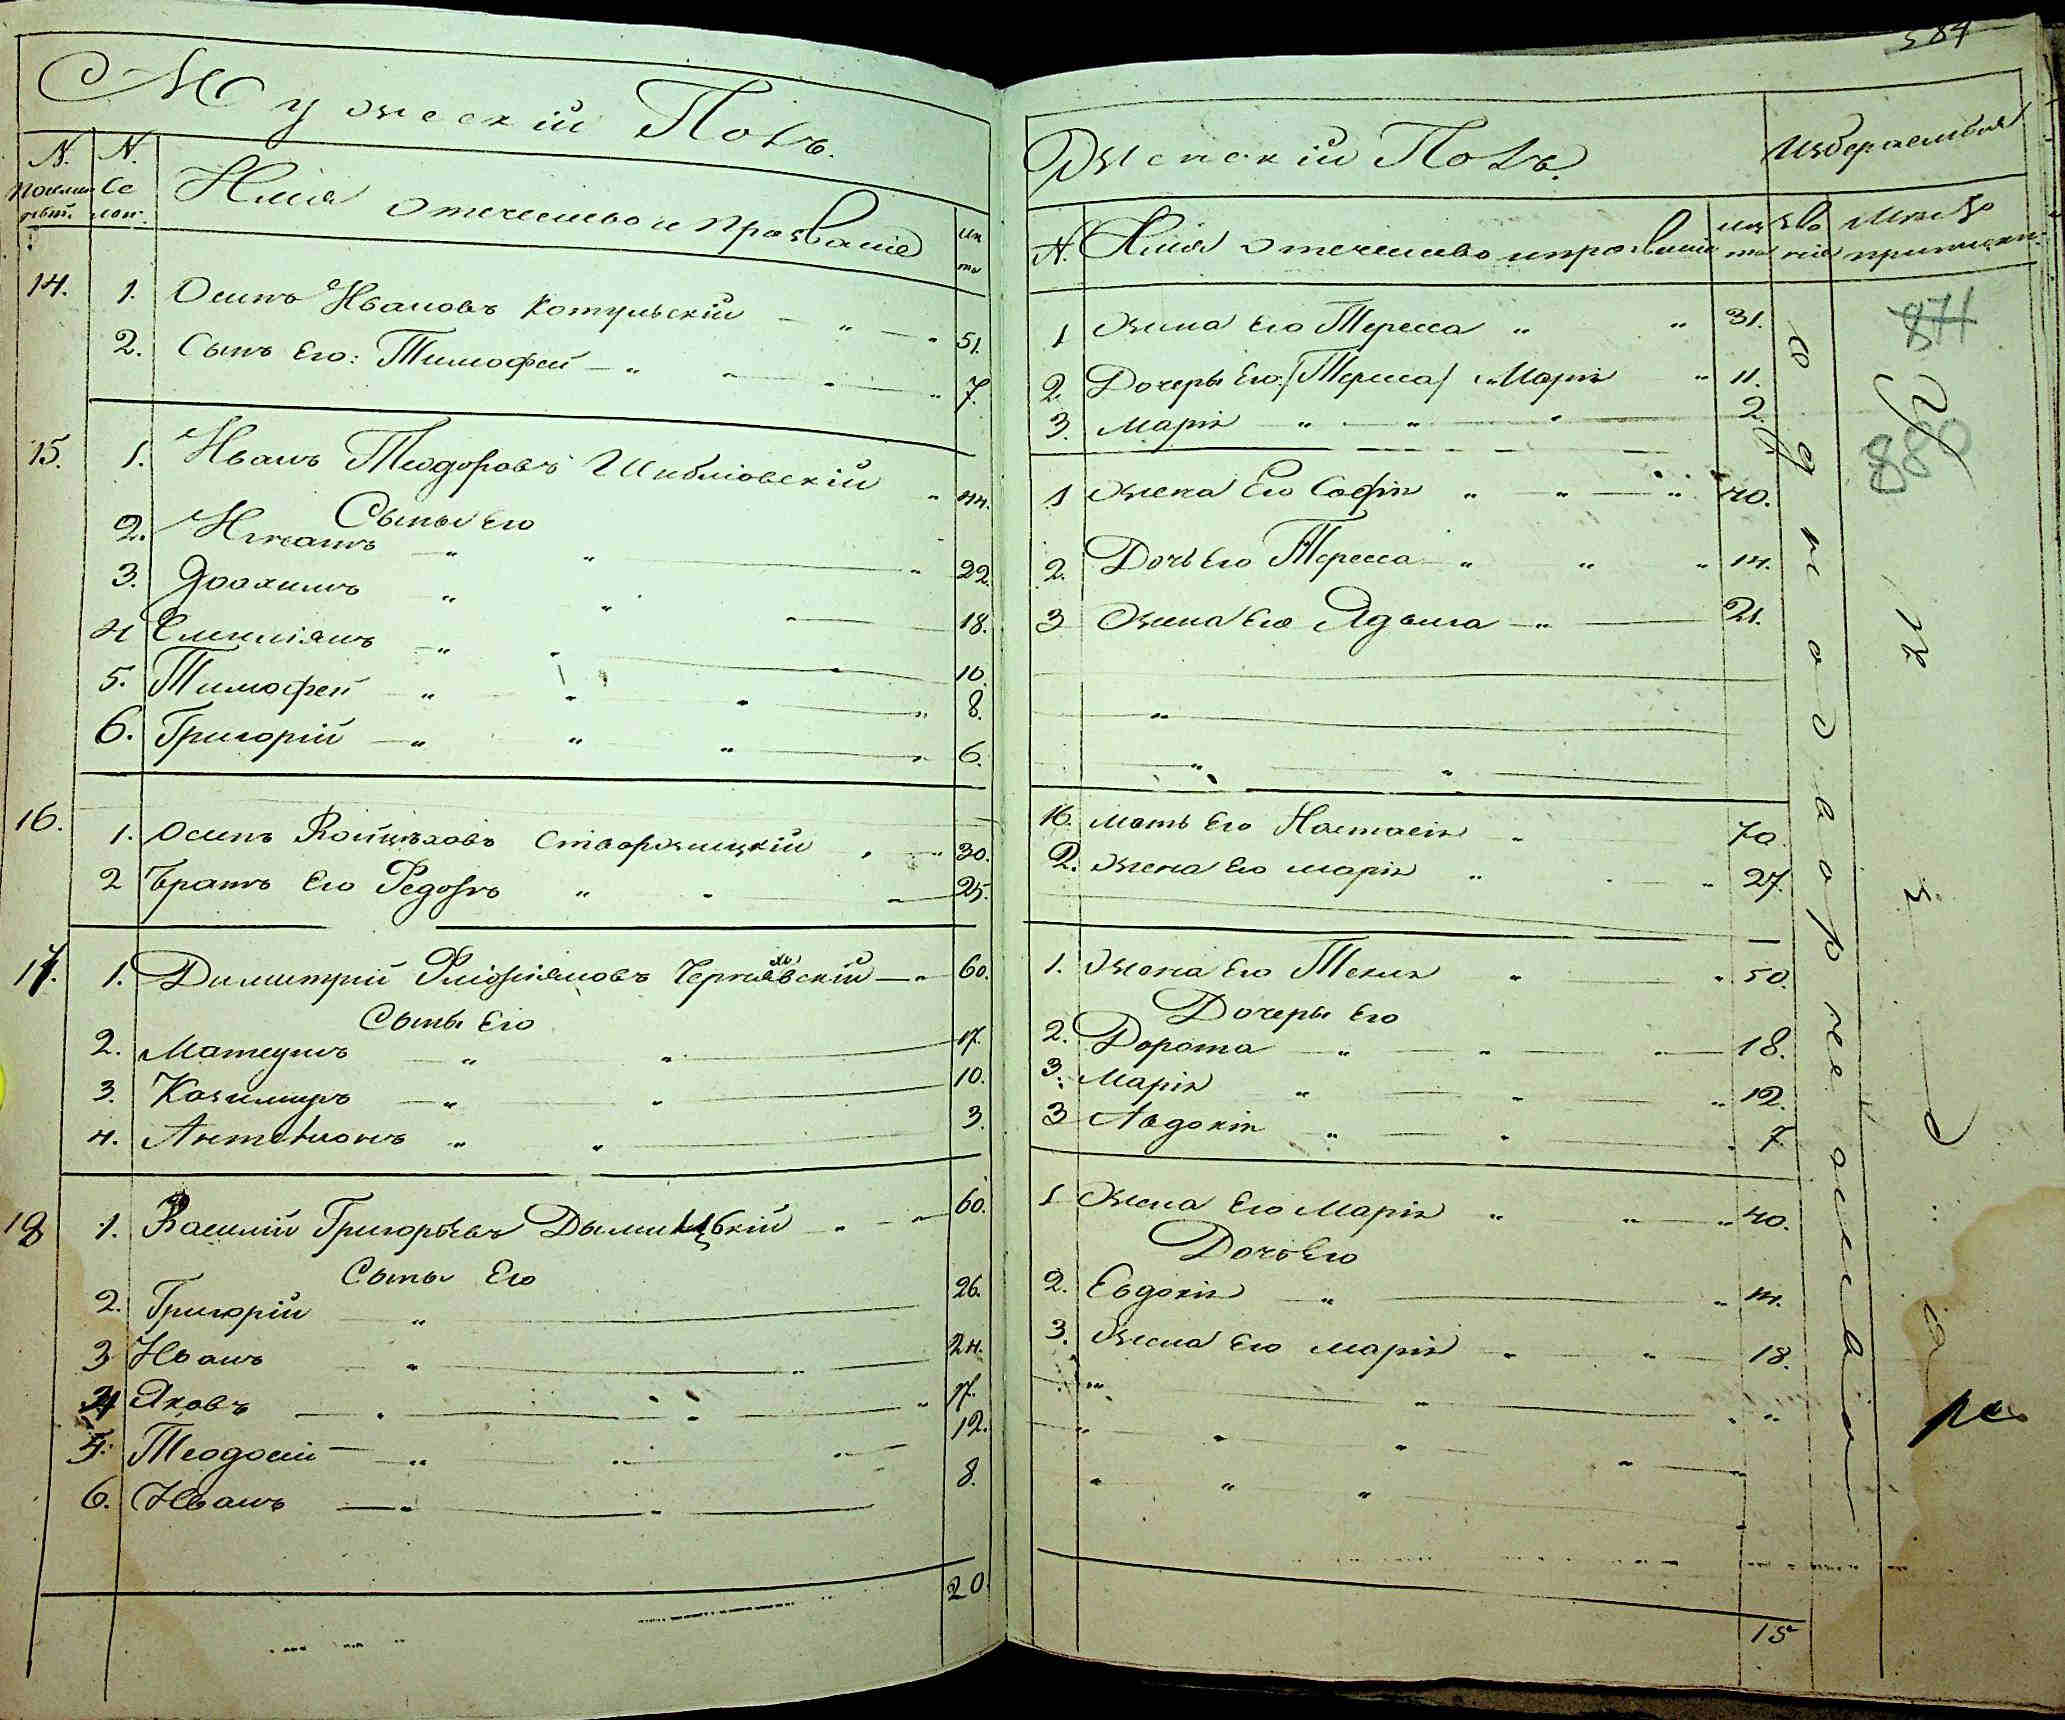 Мужескій Полъ.
N. N.
Се
Имя отечество и прозваніе
14. 1. Осипъ Ивановъ Котульскій 51.
2. Сынъ Его: Тимофей 7.
15. 1. Иванъ Теодоровъ 44.
Сыны Его
2. Игнатъ 22.
3. Іоахимъ 18.
4 Емиліянъ 10.
5. Тимофей 8.
6. Григорій 6.
16. 1. Осипъ Войцѣховъ 30.
2 Братъ Его Федоръ 25.
17. 1. Димитрій 60.
Сыны Его
2. Матеушъ 17.
3. Казимиръ 10.
4. 3.
18 1. Василій Григорьевъ 60.
Сыны Его
2. Григорій 26.
3 Иванъ 24.
4 Яковъ 17.
5. Теодосій 12.
6. Иванъ 8.
20
584
Женскій Полъ.
N. Имя отечество и прозваніе
1 Жена Его Тересса 31.
2. Дочеры Его: /Тересса/ Марія 11.
3. Марія 2.
1 Жена Его Софія 40.
2. Дочь Его Тересса 14.
3 Жена Его Ядвига 21.
16. Мать Его Настасія 70.
2. Жена Его Марія 27.
1. Жена Его Текля 50.
Дочеры Его
2. Дорота 18.
3. Марія 12.
3 Авдокія 7.
1 Жена Его Марія 40.
Дочь Его
2. Евдокія 14.
3. Жена Его Марія 18.
15
874
880